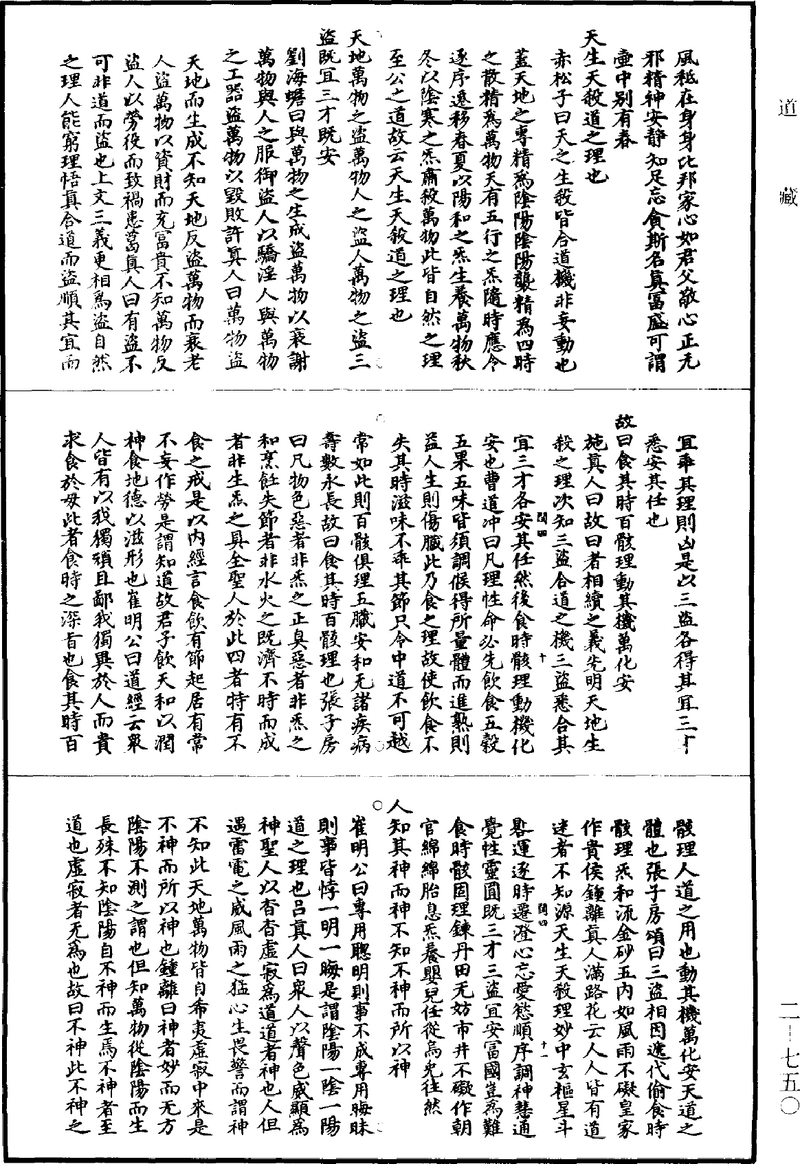 道藏
風秪在身身比邦家心如君父敬心正无
邪精神安靜知足忘貪斯名真富盛可謂
壺中別有春
天生天殺道之理也
赤松子曰天之生殺皆合道機非妄動也
蓋天地之專精爲陰陽陰陽襲精爲四時
之散精爲萬物天有五行之炁隨時應令
逐序遷移春夏以陽和之炁生養萬物秋
冬以陰寒之炁肅殺萬物此皆自然之理
至公之道故云天生天殺道之理也
天地萬物之盜萬物人之盜人萬物之盜三
盜既宜三才既安
劉海蟾曰與萬物之生成盜萬物以衰謝
萬物與人之服御盜人以驕淫人與萬物
之工器盜萬物以毀敗許真人曰萬物盜
天地而生成不知天地反盜萬物而衰老
人盜萬物以資財而充富貴不知萬物反
盜人以勞役而致禍患葛真人曰有盜不
可非道而盜也上文三義更相爲盜自然
之理人能窮理悟真合道而盜順其宜而
宜乖其理則凶是以三盜各得其宜三才
悉安其任也
故曰食其時百骸理動其機萬化安
施真人曰故曰者相續之義先明天地生
殺之理次知三盜合道之機三盜悉合其
宜三才各安其任然後食時骸理動機化
安也曹道沖曰凡理性命必先飲食五穀
五果五味皆須調候得所量體而進熟則
益人生則傷臟此乃食之理故使飲食不
失其時滋味不乖其節只令中道不可越
常如此則百骸俱理五臟安和无諸疾病
壽數永長故曰食其時百骸理也張子房
曰凡物色惡者非炁之正臭惡者非炁之
和烹飪失節者非水火之既濟不時而成
者非生炁之具全聖人於此四者特有不
食之戒是以內經言食飲有節起居有常
不妄作勞是謂知道故君子飲天和以潤
神食地德以滋形也崔明公曰道經云衆
人皆有以我獨頑且鄙我獨異於人而貴
求食於母此者食時之深旨也食其時百
骸理人道之用也動其機萬化安天道之
體也張子房頌曰三盜相因遞代偷食時
骸理炁和流金砂五內如風雨不礙皇家
作貴侯鍾離真人滿路花云人人皆有道
迷者不知源天生天殺理妙中玄樞星斗
晷運逐時遷澄心忘愛慾順序調神慧通
覺性靈圓既三才三盜宜安富國豈爲難
食時骸固理鍊丹田无妨市井不礙作朝
官綿綿胎息炁養嬰兒任從烏兔往然
人知其神而神不知不神而所以神
崔明公曰專用聰明則事不成專用晦昧
則事皆悖一明一晦是謂陰陽一陰一陽
道之理也呂真人曰衆人以聲色威顯爲
神聖人以杳杳虛寂爲道道者神也人但
遇雷電之威風雨之猛心生畏警而謂神
不知此天地萬物皆自希夷虛寂中來是
不神而所以神也鍾離曰神者妙而无方
陰陽不測之謂也但知萬物從陰陽而生
長殊不知陰陽自不神而生焉不神者至
道也虛寂者无爲也故曰不神此不神之
二－七五〇